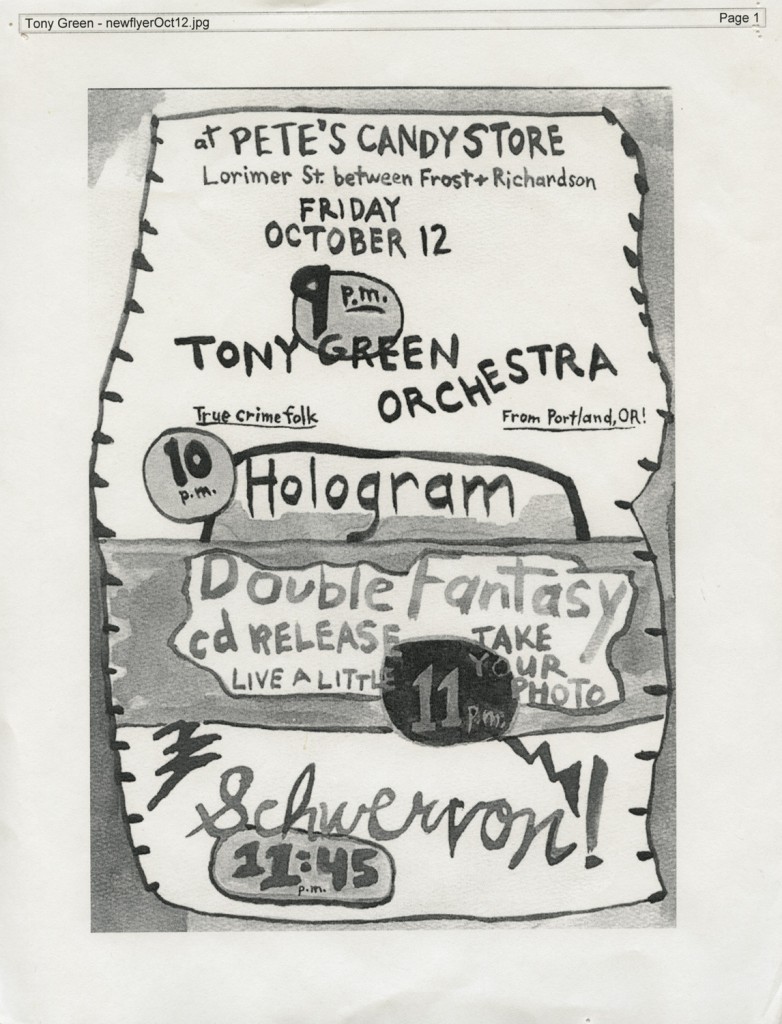 Tony Green - newflyerOct12.jpg
Page 1
at PETE'S CANDY STORE
Lorimer St. between Frost + Richardson
FRIDAY
OCTOBER 12
9 P.M.
TONY GREEN
ORCHESTRA
True crime folk
From Portland, OR!
10
p.m.
Hologram
Double Fantasy
cd RELEASE
LIVE A LITTLE
TAKE
YOUR
PHOTO
11 p.m.
Schwervon!
11:45
p.m.